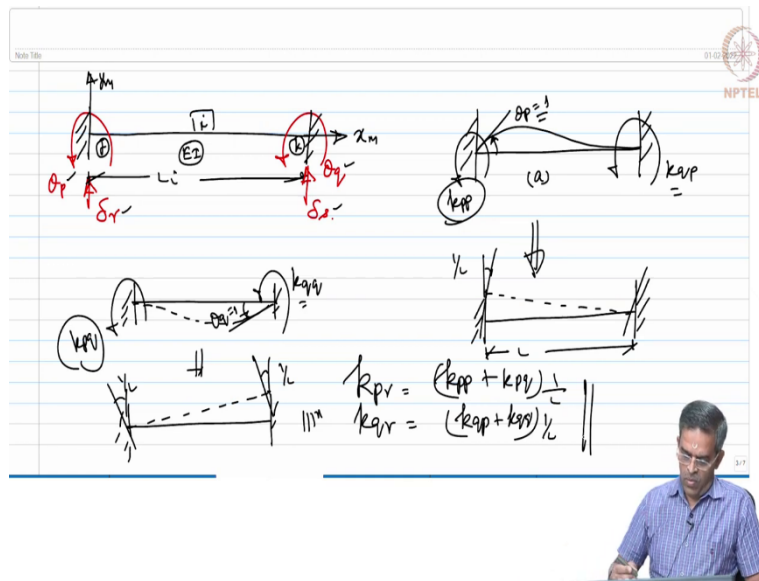 Note Title
01-02-2019
NPTEL
ym
i
xm
j
k
EI
Li
θp
θq
δr
δs
θp=1
kpp
kqp
(a)
1/L
L
kqq
θq=1
kpq
1/L
1/L
|||ly
kpr = (kpp + kpq) 1/L
kqr = (kqp + kqq) 1/L
3/7